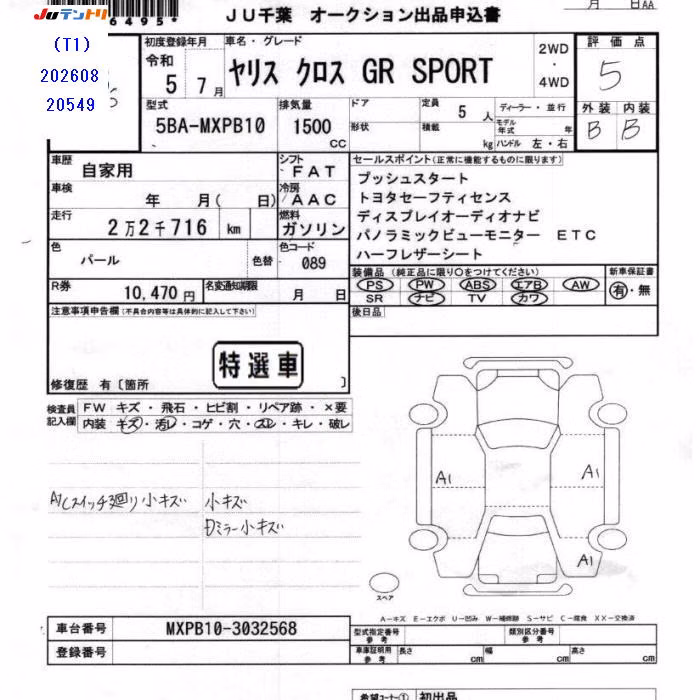 JUテントリ
6495
月 日AA
JU千葉 オークション出品申込書
(T1)
202608
20549
初度登録年月
令和
5 7月
車名・グレード
ヤリス クロス GR SPORT
2WD
・
4WD
評価点
5
外装 内装
B B
型式
5BA-MXPB10
排気量
1500
CC
ドア
形状
定員 5 人
積載 kg
ディーラー・並行
モデル年式 年
ハンドル 左・右
車歴
自家用
シフト
FAT
車検
年 月( 日)
冷房
AAC
走行
2万2千716 km
燃料
ガソリン
色
パール
色替
色コード
089
R券
10,470円
名変通知期限
月 日
セールスポイント(正常に機能するものに限ります)
プッシュスタート
トヨタセーフティセンス
ディスプレイオーディオナビ
パノラミックビューモニター ETC
ハーフレザーシート
装備品(純正品に限り○をつけてください)
PS PW ABS エアB AW
SR ナビ TV カワ
新車保証書
有・無
後日品
注意事項申告欄(不具合内容等は具体的に記入して下さい)
特選車
修復歴 有〔箇所 〕
検査員記入欄
FW キズ・飛石・ヒビ割・リペア跡・×要
内装 キズ・汚レ・コゲ・穴・スレ・キレ・破レ
小キズ 小キズ
Dミラー小キズ
A1
A1
A1
スペア
A-キズ E-エクボ U-凹み W-補修跡 S-サビ C-腐食 XX-交換済
車台番号 MXPB10-3032568
登録番号
型式指定番号参考
類別区分番号参考
車庫証明用参考
長さ cm 幅 cm 高さ cm
希望コーナー① 初出品